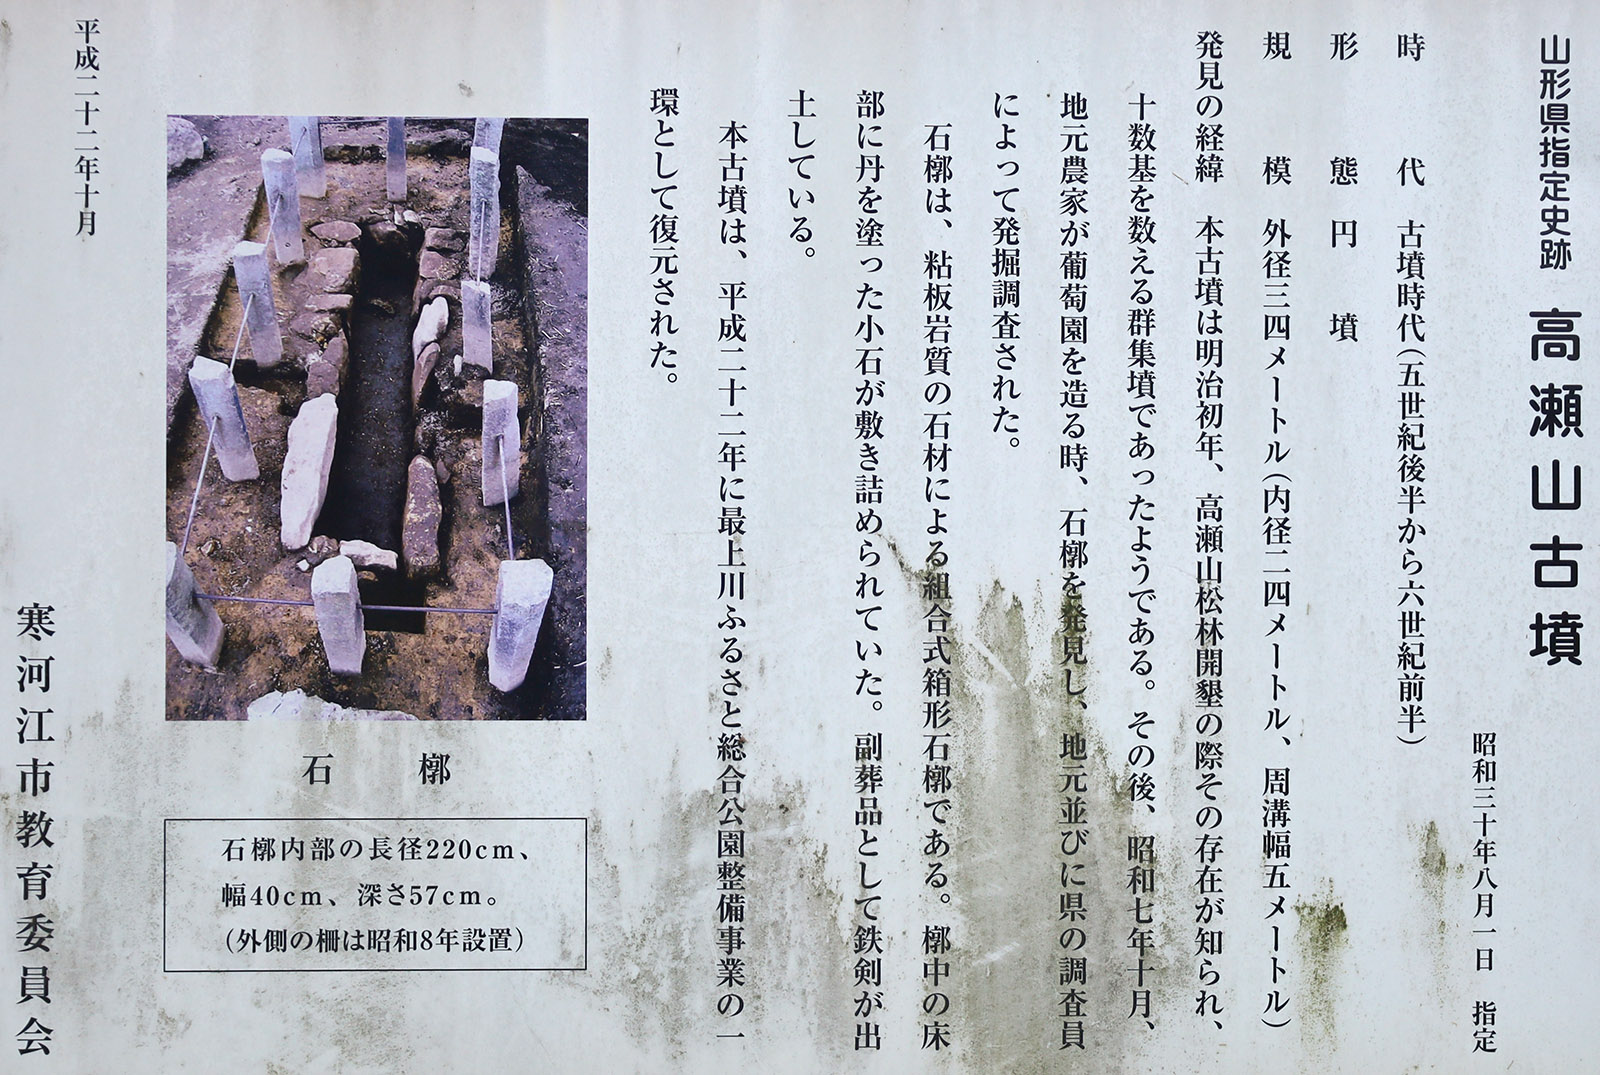 山形県指定史跡 高瀬山古墳
昭和三十年八月一日 指定
時代 古墳時代(五世紀後半から六世紀前半)
形態 円墳
規模 外径三四メートル(内径二四メートル、周溝幅五メートル)
発見の経緯 本古墳は明治初年、高瀬山松林開墾の際その存在が知られ、
十数基を数える群集墳であったようである。その後、昭和七年十月、
地元農家が葡萄園を造る時、石槨を発見し、地元並びに県の調査員
によって発掘調査された。
石槨は、粘板岩質の石材による組合式箱形石槨である。槨中の床
部に丹を塗った小石が敷き詰められていた。副葬品として鉄剣が出
土している。
本古墳は、平成二十二年に最上川ふるさと総合公園整備事業の一
環として復元された。
石槨
石槨内部の長径220cm、
幅40cm、深さ57cm。
(外側の柵は昭和8年設置)
平成二十二年十月
寒河江市教育委員会